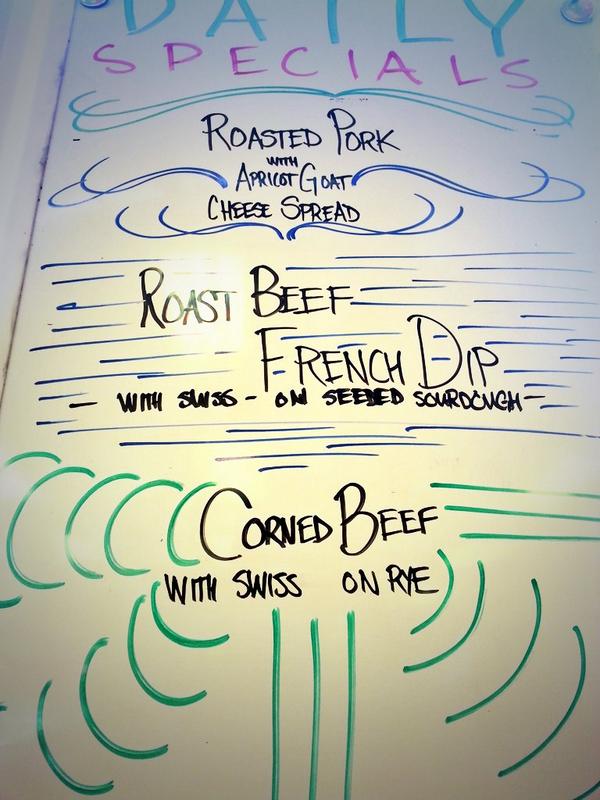 DAILY
SPECIALS
ROASTED PORK
WITH
APRICOT GOAT
CHEESE SPREAD
ROAST BEEF
FRENCH DIP
— WITH SWISS - ON SEEDED SOURDOUGH —
CORNED BEEF
WITH SWISS ON RYE